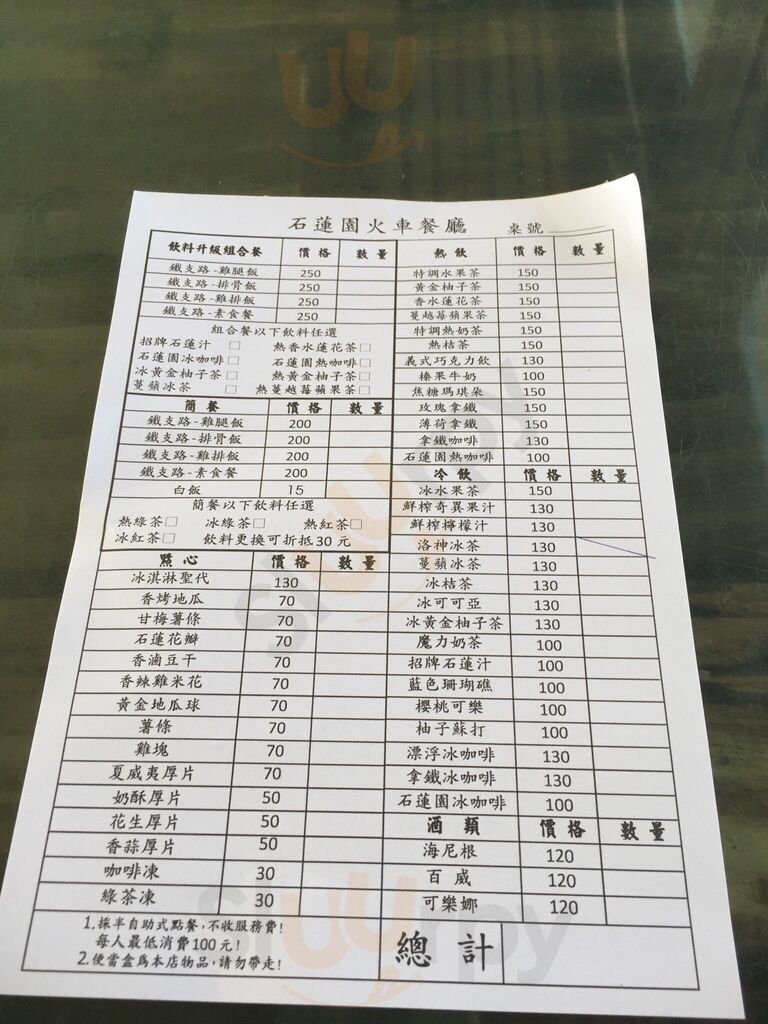 石蓮園火車餐廳 桌號
飲料升級組合餐 價格 數量
鐵支路-雞腿飯 250
鐵支路-排骨飯 250
鐵支路-雞排飯 250
鐵支路-素食餐 250
組合餐以下飲料任選
招牌石蓮汁 □ 熱香水蓮花茶□
石蓮園冰咖啡□ 石蓮園熱咖啡□
冰黃金柚子茶□ 熱黃金柚子茶□
蔓蘋冰茶 □ 熱蔓越莓蘋果茶□
簡餐 價格 數量
鐵支路-雞腿飯 200
鐵支路-排骨飯 200
鐵支路-雞排飯 200
鐵支路-素食餐 200
白飯 15
簡餐以下飲料任選
熱綠茶□ 冰綠茶□ 熱紅茶□
冰紅茶□ 飲料更換可折抵30元
點心 價格 數量
冰淇淋聖代 130
香烤地瓜 70
甘梅薯條 70
石蓮花瓣 70
香滷豆干 70
香辣雞米花 70
黃金地瓜球 70
薯條 70
雞塊 70
夏威夷厚片 70
奶酥厚片 50
花生厚片 50
香蒜厚片 50
咖啡凍 30
綠茶凍 30
1.採半自助式點餐,不收服務費!
每人最低消費100元!
2.便當盒為本店物品,請勿帶走!
熱飲 價格 數量
特調水果茶 150
黃金柚子茶 150
香水蓮花茶 150
蔓越莓蘋果茶 150
特調熱奶茶 150
熱桔茶 150
義式巧克力飲 130
榛果牛奶 100
焦糖瑪琪朵 150
玫瑰拿鐵 150
薄荷拿鐵 150
拿鐵咖啡 130
石蓮園熱咖啡 100
冷飲 價格 數量
冰水果茶 150
鮮榨奇異果汁 130
鮮榨檸檬汁 130
洛神冰茶 130
蔓蘋冰茶 130
冰桔茶 130
冰可可亞 130
冰黃金柚子茶 130
魔力奶茶 100
招牌石蓮汁 100
藍色珊瑚礁 100
櫻桃可樂 100
柚子蘇打 100
漂浮冰咖啡 130
拿鐵冰咖啡 130
石蓮園冰咖啡 100
酒類 價格 數量
海尼根 120
百威 120
可樂娜 120
總計
sluurpy